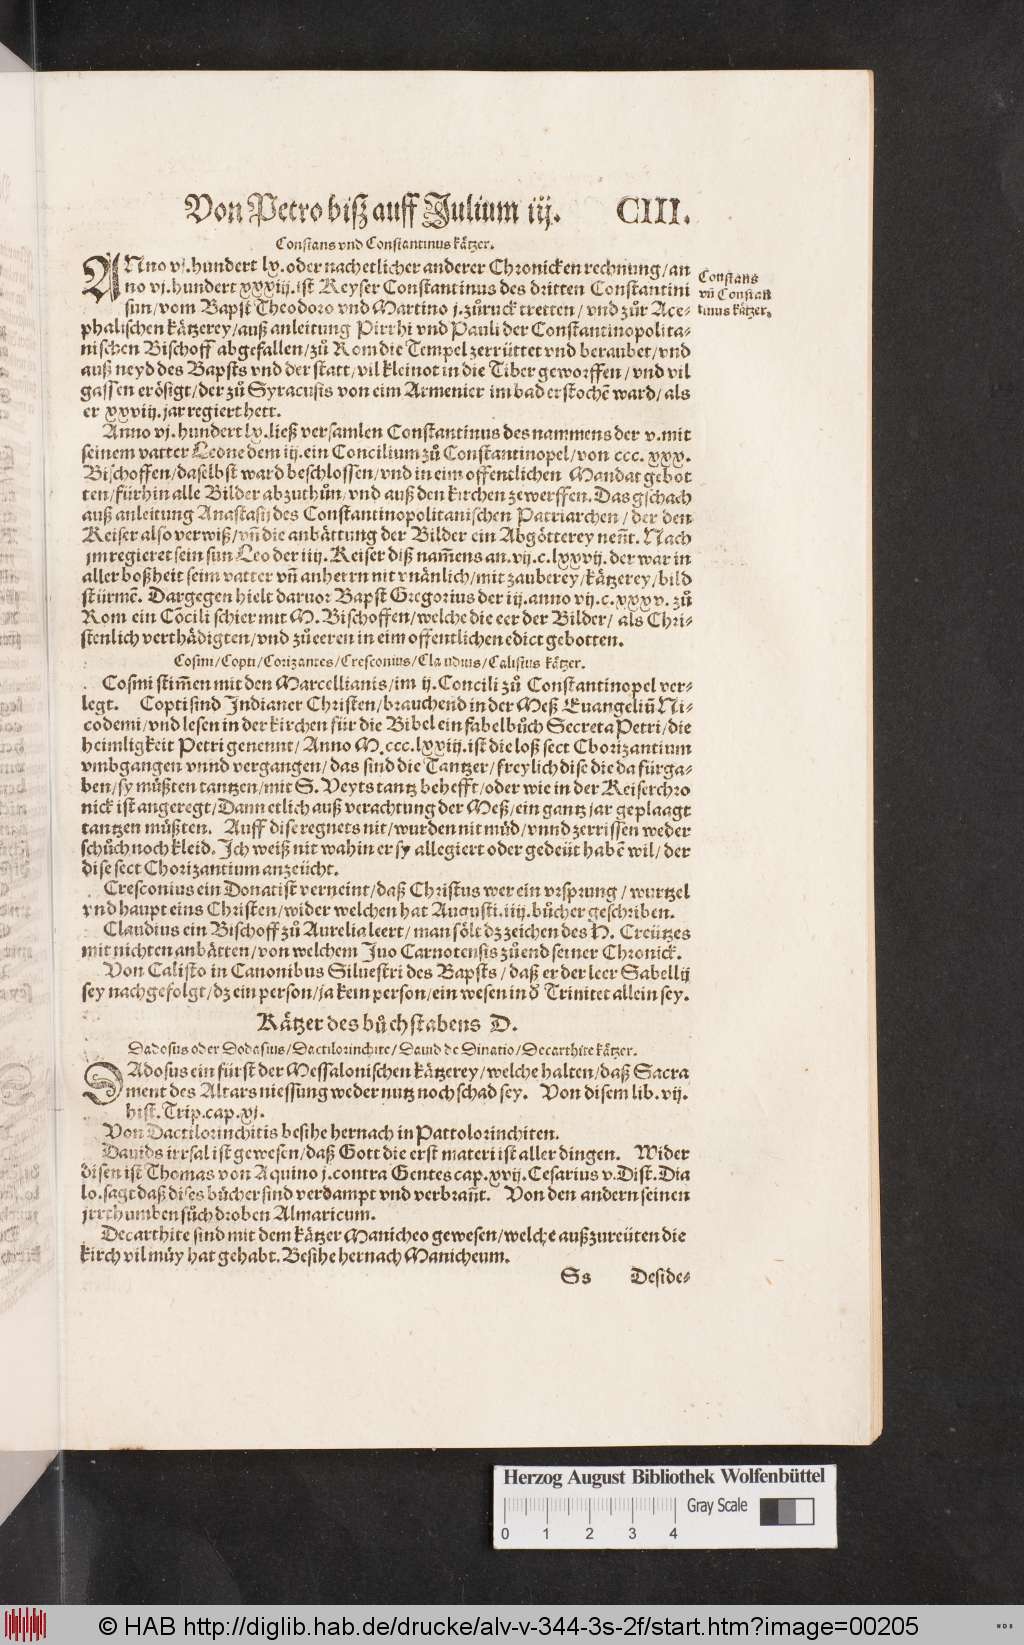 Von Petro biß auff Julium iij. CIII.
Constans vnd Constantinus kätzer.
ANno vj. hundert lx. oder nach etlicher anderer Chronicken rechnung / an
no vj. hundert xxxiij. ist Keyser Constantinus des dritten Constantini
sun / vom Bapst Theodoro vnd Martino j. zůruck tretten / vnd zůr Ace-
phalischen kätzerey / auß anleitung Pirrhi vnd Pauli der Constantinopolita-
nischen Bischoff abgefallen / zů Rom die Tempel zerrüttet vnd beraubet / vnd
auß neyd des Bapsts vnd der statt / vil kleinot in die Tiber geworffen / vnd vil
gassen erösigt / der zů Syracusis von eim Armenier im bad erstochē ward / als
er xxvij. jar regiert hett.
Constans
vñ Constan
tinus kätzer.
Anno vj. hundert lx. ließ versamlen Constantinus des nammens der v. mit
seinem vatter Leone dem iij. ein Concilium zů Constantinopel / von ccc. xxx.
Bischoffen / daselbst ward beschlossen / vnd in eim offentlichen Mandat gebot
ten / fürhin alle Bilder abzuthůn / vnd auß den kirchen zewerffen. Das gschach
auß anleitung Anastasij des Constantinopolitanischen Patriarchen / der den
Keiser also verwiß / vñ die anbättung der Bilder ein Abgötterey neñt. Nach
jm regieret sein sun Leo der iiij. Keiser diß nam̃ens an. vij. c. lxxvij. der war in
aller boßheit seim vatter vñ anherrn nit vnänlich / mit zauberey / kätzerey / bild
stürmē. Dargegen hielt daruor Bapst Gregorius der iij. anno vij. c. xxxv. zů
Rom ein Cōcili schier mit M. Bischoffen / welche die eer der Bilder / als Chri-
stenlich verthädigten / vnd zů eeren in eim offentlichen edict gebotten.
Cosmi / Copti / Corizantes / Cresconius / Claudius / Calistus kätzer.
Cosmi stim̃en mit den Marcellianis / im ij. Concili zů Constantinopel ver-
legt. Copti sind Indianer Christen / brauchend in der Meß Euangeliū Ni-
codemi / vnd lesen in der kirchen für die Bibel ein fabelbůch Secreta Petri / die
heimligkeit Petri genennt / Anno M. ccc. lxxiij. ist die loß sect Chorizantium
vmbgangen vnnd vergangen / das sind die Tantzer / freylich dise die da fürga-
ben / sy můßten tantzen / mit S. Veyts tantz behefft / oder wie in der Keiserchro
nick ist angeregt / Dann etlich auß verachtung der Meß / ein gantz jar geplaagt
tantzen můßten. Auff dise regnets nit / wurden nit můd / vnnd zerrissen weder
schůch noch kleid. Ich weiß nit wahin er sy allegiert oder gedeüt habē wil / der
dise sect Chorizantium anzeücht.
Cresconius ein Donatist verneint / daß Christus wer ein vrsprung / wurtzel
vnd haupt eins Christen / wider welchen hat Augusti. iiij. bůcher geschriben.
Claudius ein Bischoff zů Aurelia leert / man sölt dz zeichen des H. Creützes
mit nichten anbätten / von welchem Juo Carnotensis zů end seiner Chronick.
Von Calisto in Canonibus Siluestri des Bapsts / daß er der leer Sabellij
sey nachgefolgt / dz ein person / ja kein person / ein wesen in d̄ Trinitet allein sey.
Kätzer des bůchstabens D.
Dadosus oder Dodasius / Dactilorinchite / Dauid de Dinatio / Decarthite kätzer.
DAdosus ein fürst der Messalonischen kätzerey / welche halten / daß Sacra
ment des Altars niessung weder nutz noch schad sey. Von disem lib. vij.
hist. Trip. cap. xj.
Von Dactilorinchitis besihe hernach in Pattolorinchiten.
Dauids irrsal ist gewesen / daß Gott die erst materi ist aller dingen. Wider
disen ist Thomas von Aquino j. contra Gentes cap. xvij. Cesarius v. Dist. Dia
lo. sagt daß dises bůcher sind verdampt vnd verbrañt. Von den andern seinen
jrrthumben sůch droben Almaricum.
Decarthite sind mit dem kätzer Manicheo gewesen / welche außzureüten die
kirch vil můy hat gehabt. Besihe hernach Manicheum.
Ss Deside-
Herzog August Bibliothek Wolfenbüttel
Gray Scale
0 1 2 3 4
© HAB http://diglib.hab.de/drucke/alv-v-344-3s-2f/start.htm?image=00205